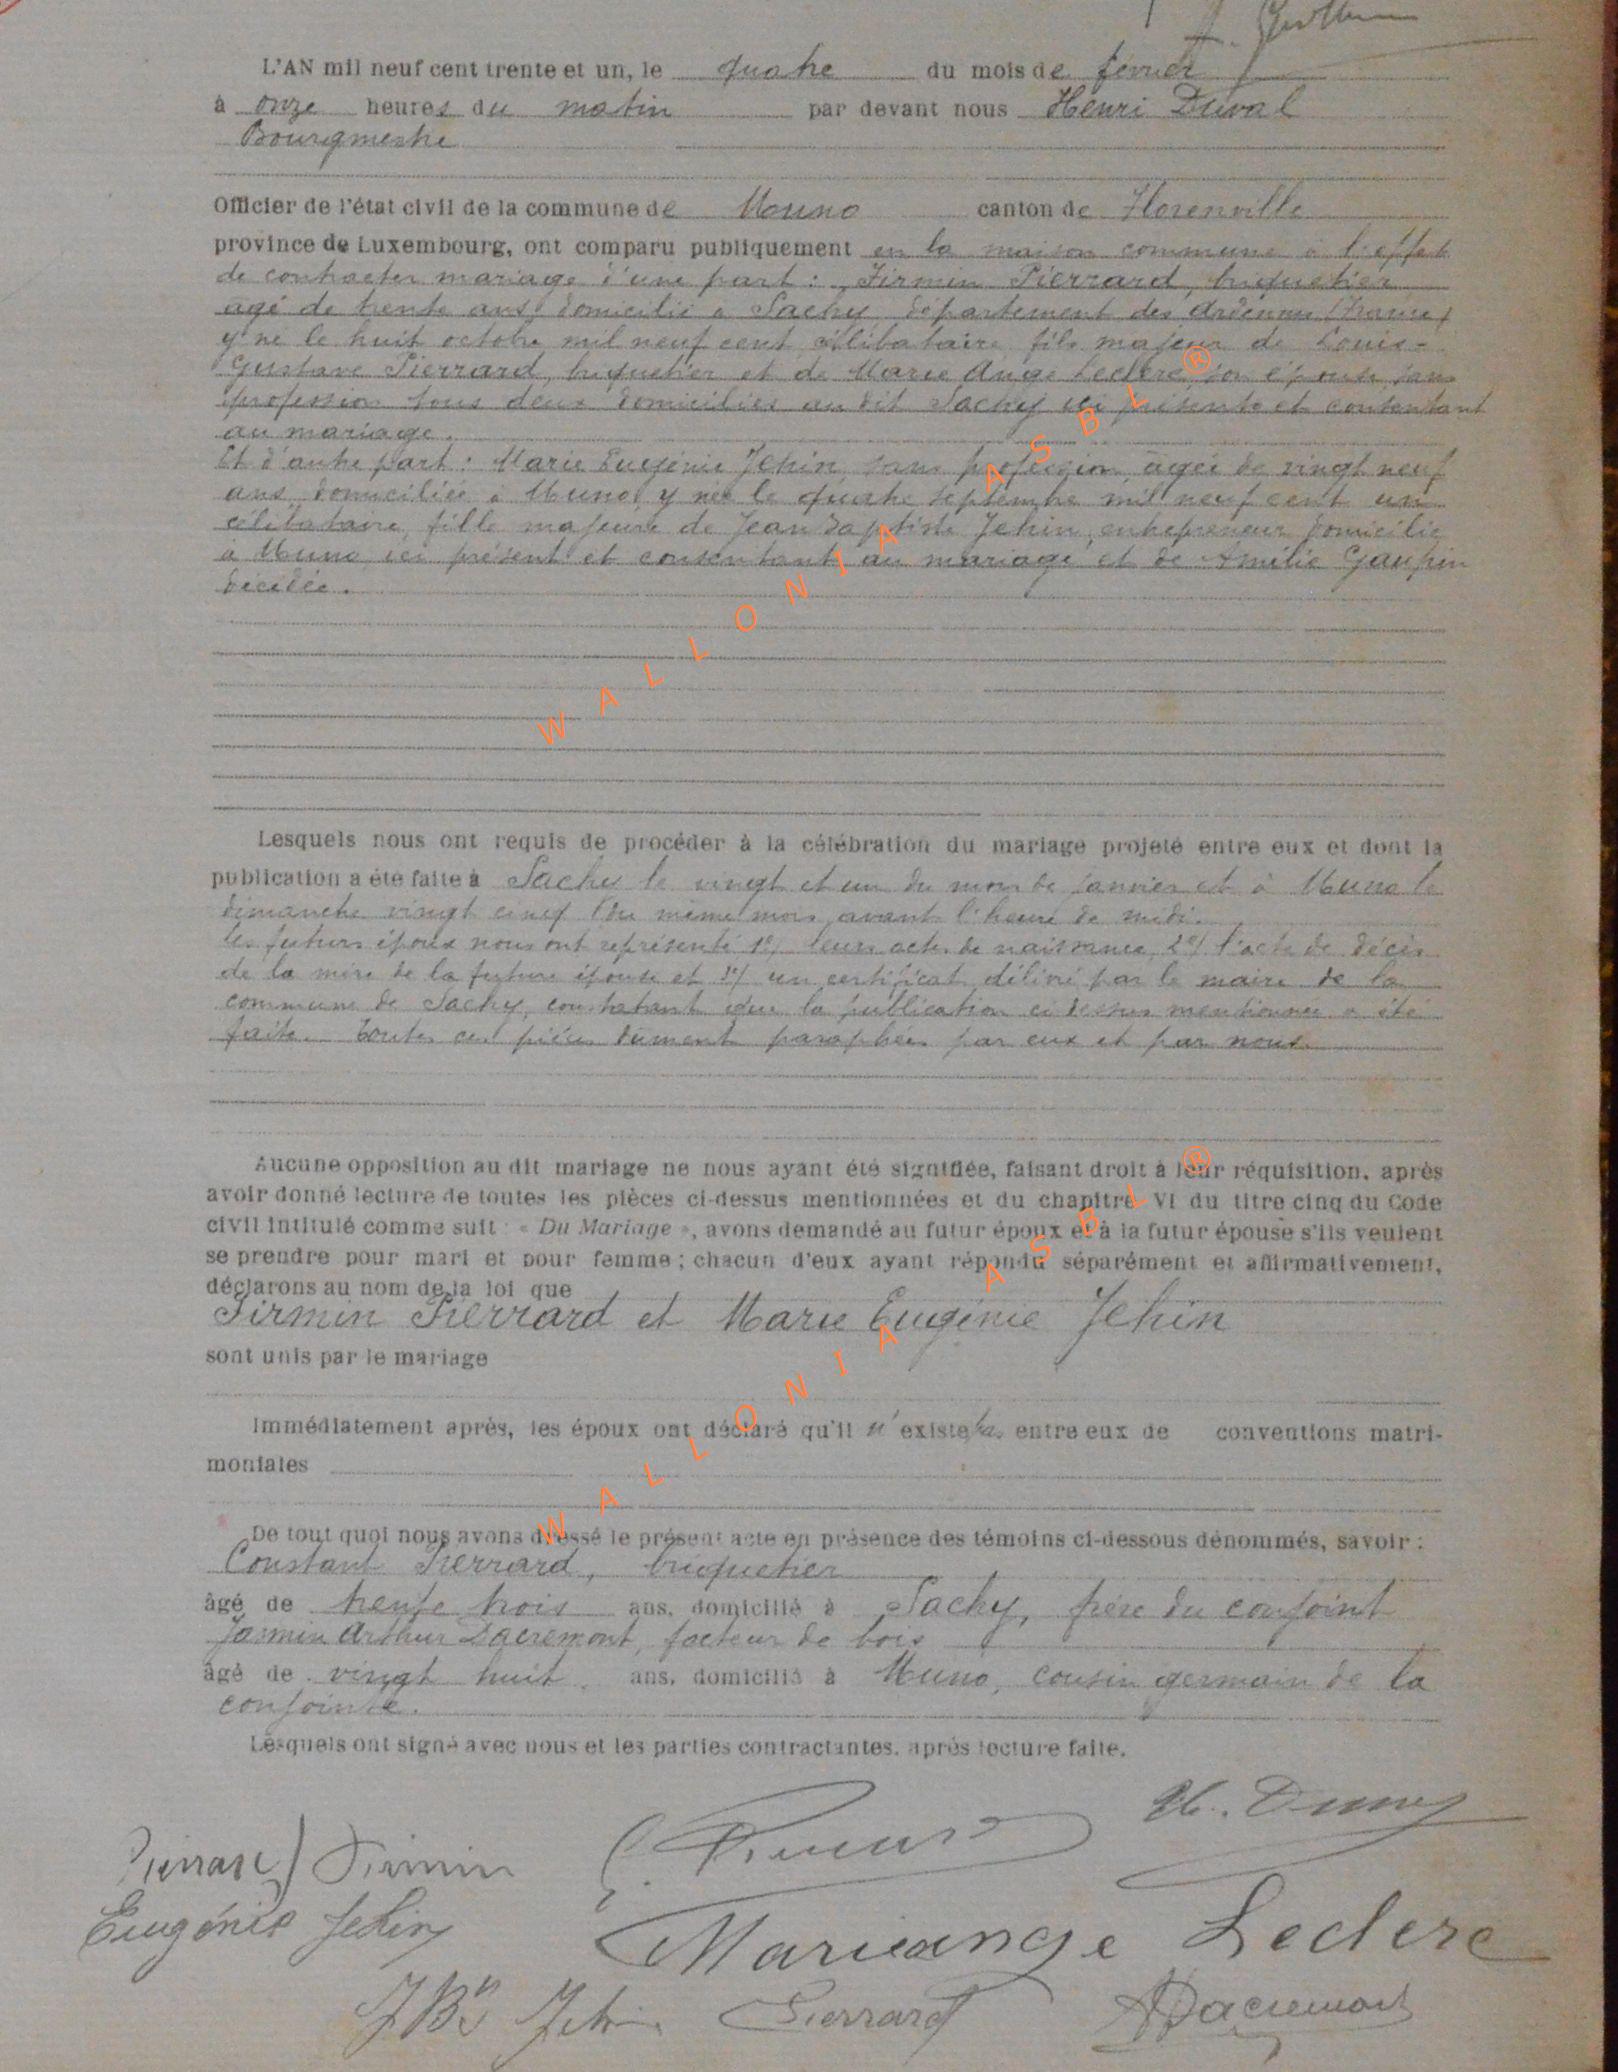 L'AN mil neuf cent trente et un, le quatre du mois de février
à onze heures du matin par devant nous Henri Duval
Bourgmestre
Officier de l'état civil de la commune de Muno canton de Florenville
province de Luxembourg, ont comparu publiquement en la maison commune à l'effet
de contracter mariage d'une part : Firmin Pierrard, briquetier
agé de trente ans, domicilié à Sachy, département des Ardennes (France)
y né le huit octobre mil neuf cent, célibataire, fils majeur de Louis-
Gustave Pierrard, briquetier et de Marie Ange Leclere son épouse sans
profession tous deux domiciliés au dit Sachy ici présents et consentant
au mariage.
Et d'autre part : Marie Eugénie Jehin, sans profession, âgée de vingt neuf
ans, domiciliée à Muno, y née le quatre septembre mil neuf cent un
célibataire, fille majeure de Jean Baptiste Jehin, entrepreneur domicilié
à Muno ici présent et consentant au mariage et de Amélie Gaupin
décédée.
Lesquels nous ont requis de procéder à la célébration du mariage projeté entre eux et dont la
publication a été faite à Sachy le vingt et un du mois de janvier et à Muno le
dimanche vingt cinq du même mois avant l'heure de midi.
les futurs époux nous ont représenté 1°/ leurs actes de naissance, 2°/ l'acte de décès
de la mère de la future épouse et 3°/ un certificat délivré par le maire de la
commune de Sachy, constatant que la publication ci dessus mentionnée a été
faite. Toutes ces pièces dument paraphées par eux et par nous.
Aucune opposition au dit mariage ne nous ayant été signifiée, faisant droit à leur réquisition, après
avoir donné lecture de toutes les pièces ci-dessus mentionnées et du chapitre VI du titre cinq du Code
civil intitulé comme suit : « Du Mariage », avons demandé au futur époux et à la futur épouse s'ils veulent
se prendre pour mari et pour femme ; chacun d'eux ayant répondu séparément et affirmativement,
déclarons au nom de la loi que
Firmin Pierrard et Marie Eugénie Jehin
sont unis par le mariage
Immédiatement après, les époux ont déclaré qu'il n'existe pas entre eux de conventions matri-
moniales
De tout quoi nous avons dressé le présent acte en présence des témoins ci-dessous dénommés, savoir :
Constant Pierrard, briquetier
âgé de trente trois ans, domicilié à Sachy, frère du conjoint
Arthur Dacremont, facteur de bois
âgé de vingt huit ans, domicilié à Muno, cousin germain de la
conjointe.
Lesquels ont signé avec nous et les parties contractantes, après lecture faite.
Pierrard Firmin
Eugénie Jehin
Marieange Leclere
JBte Jehin Pierrard A Dacremont
WALLONIA ASBL ®
WALLONIA ASBL ®